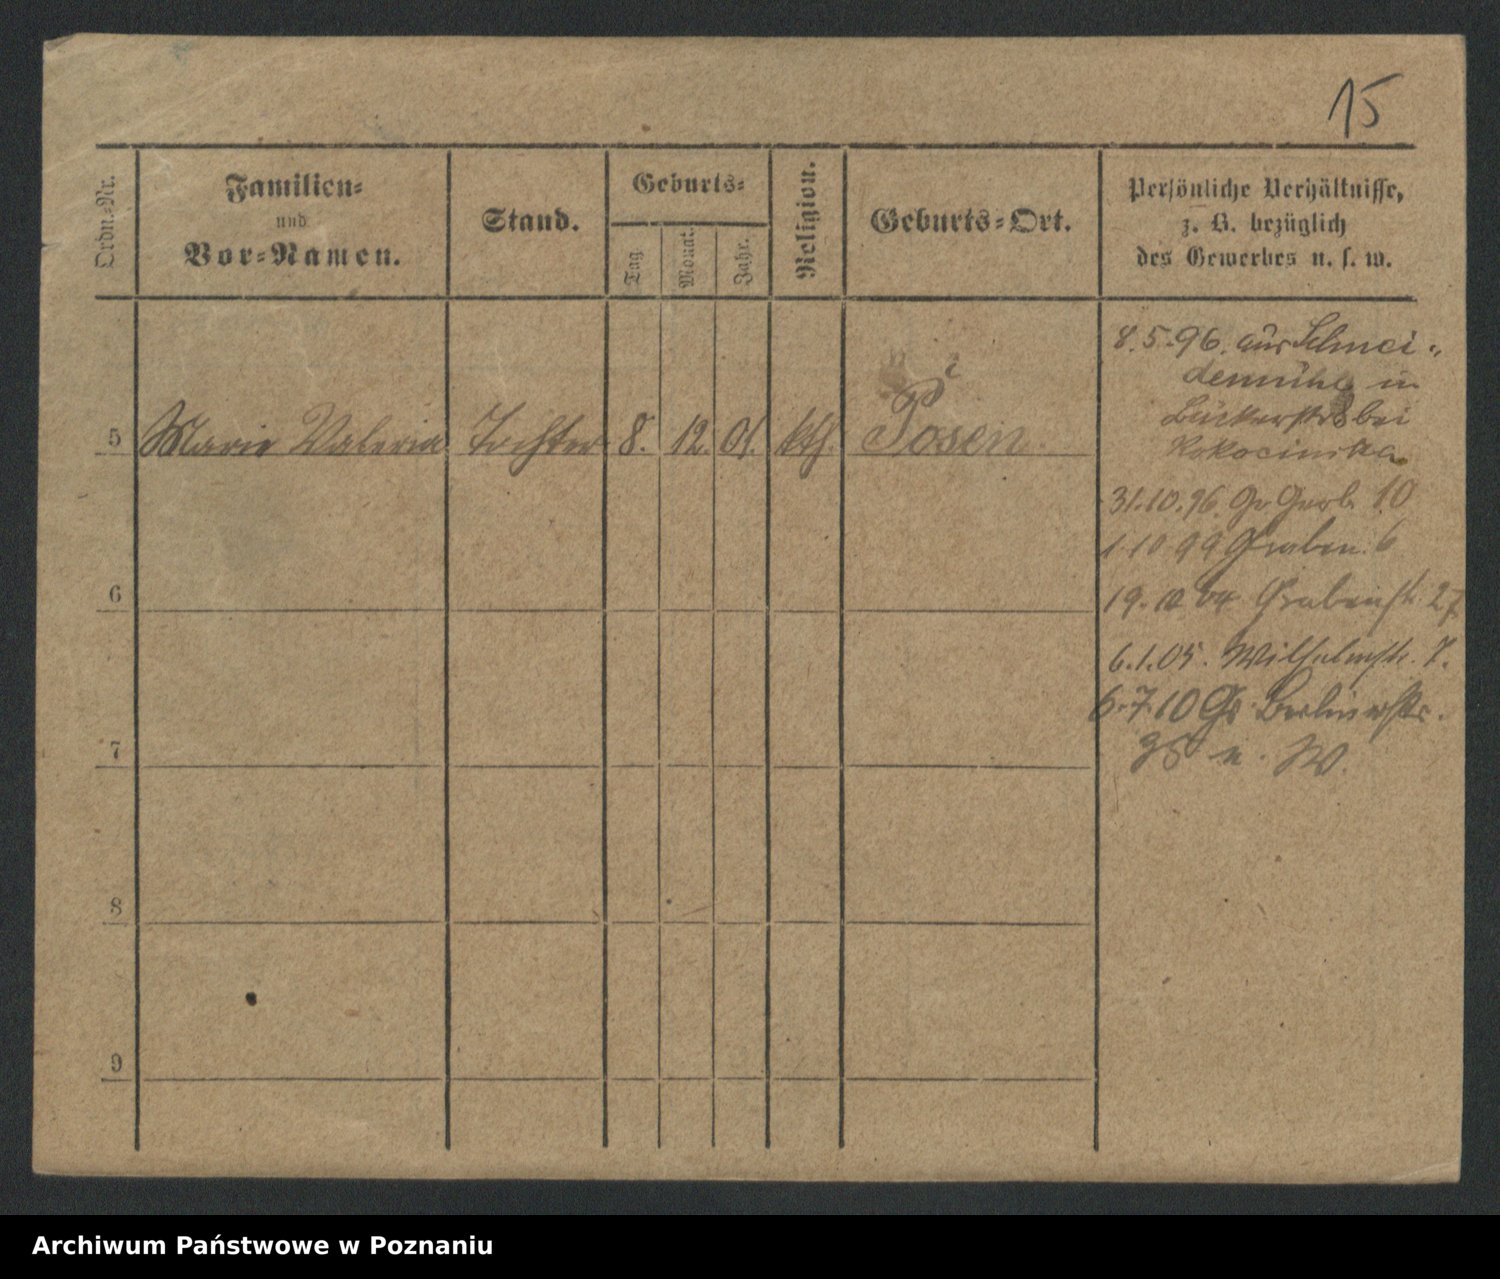 15
Ordn.-Nr.
Familien-
und
Vor-Namen.
Stand.
Geburts-
Tag.
Monat.
Jahr.
Religion.
Geburts-Ort.
Persönliche Verhältnisse,
z. B. bezüglich
des Gewerbes u. s. w.
5 Marie Valeria Tochter 8. 12. 01. kth. Posen
6
7
8
9
8.5.96. aus Schnei-
demühl in
Bäckerstr 8 bei
Kokocinska
31.10.96. Gr Gerb. 10
1.10 99 Graben 6
19. 10 04 Grabenstr. 27
6.1.05. Wilhelmstr. 7.
6.7.10 Gr Berlinerstr.
95 u. W.
Archiwum Państwowe w Poznaniu